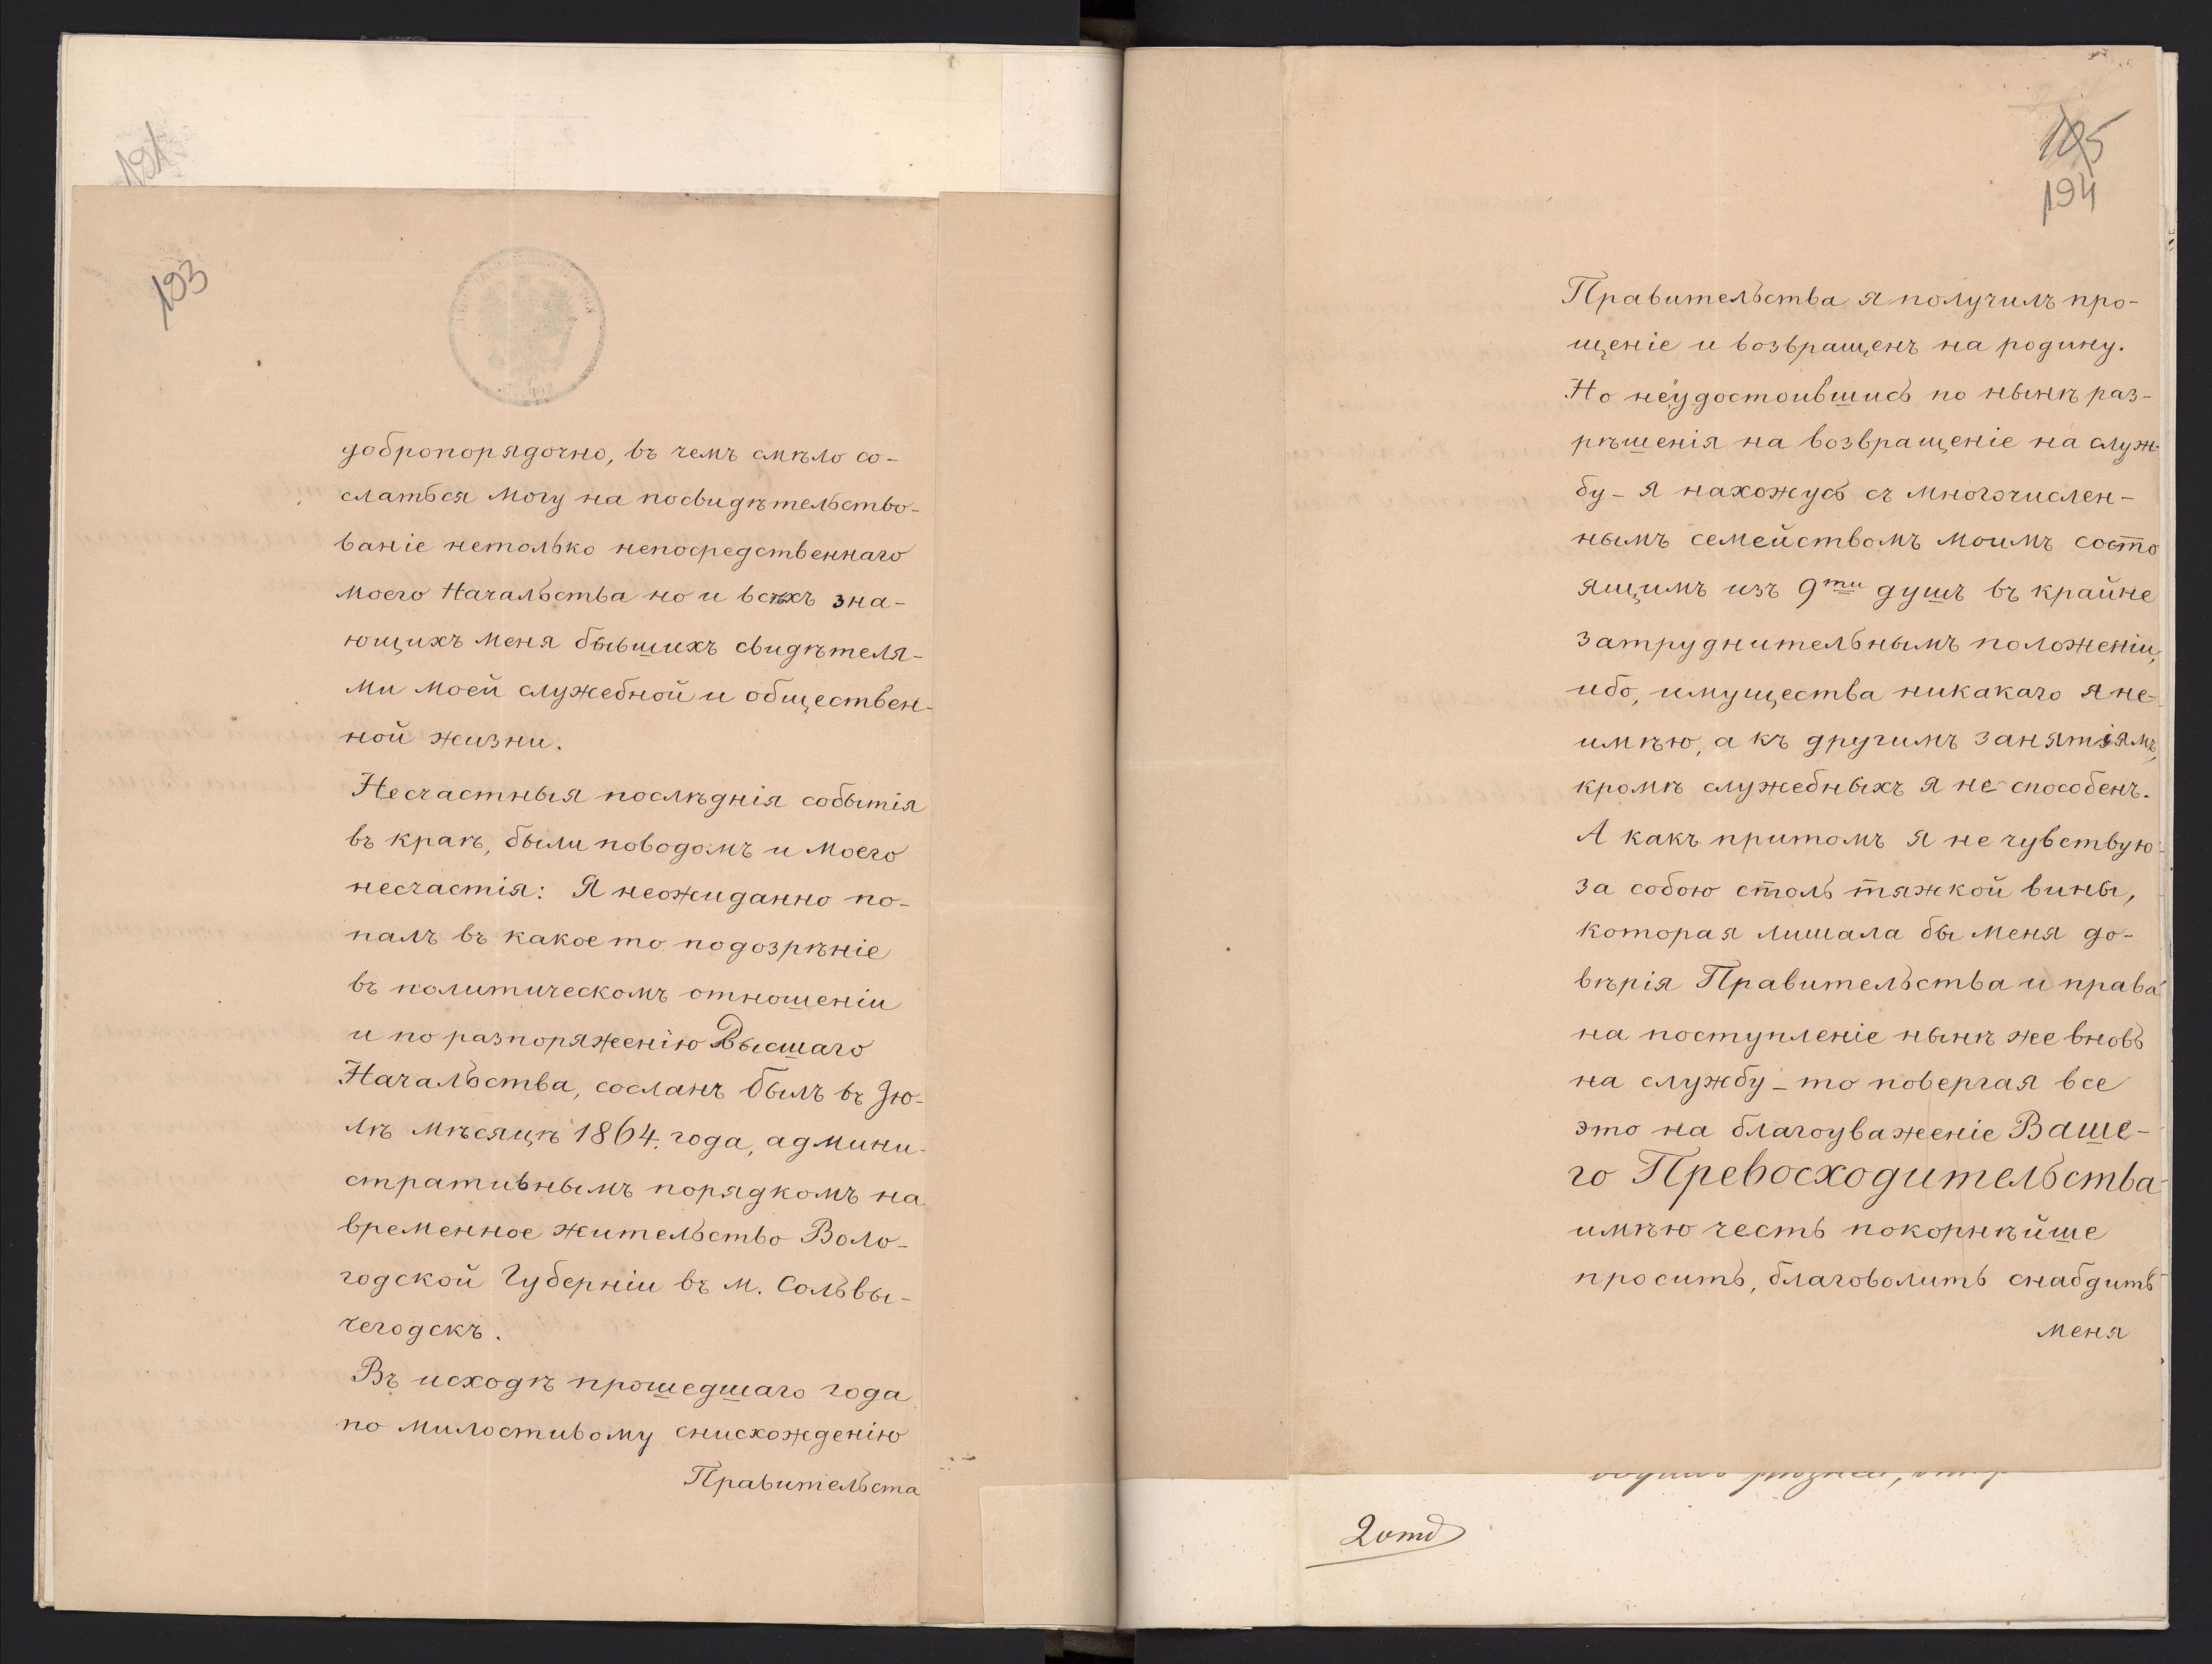 191
193
добропорядочно, въ чемъ смѣло со-
слаться могу на посвидѣтельство-
ваніе нетолько непосредственнаго
моего Начальства но и всѣхъ зна-
ющихъ меня бывшихъ свидѣтеля-
ми моей служебной и обществен-
ной жизни.
Несчастныя послѣднія событія
въ краѣ, были поводомъ и моего
несчастія: Я неожиданно по-
палъ въ какое то подозрѣніе
въ политическомъ отношеніи
и по разпоряженію Высшаго
Начальства, сосланъ былъ въ Ію-
лѣ мѣсяцѣ 1864. года, админи-
стративнымъ порядкомъ на
временное жительство Воло-
годской Губерніи въ м. Сольвы-
чегодскъ.
Въ исходѣ прошедшаго года
по милостивому снисхожденію
Правительста
195
194
Правительства я получилъ про-
щеніе и возвращенъ на родину.
Но неудостоившись по нынѣ раз-
рѣшенія на возвращеніе на служ-
бу - я нахожусь съ многочислен-
нымъ семействомъ моимъ состо
ящимъ изъ 9ти душъ въ крайне
затруднительнымъ положеніи,
ибо, имущества никакаго я не-
имѣю, а къ другимъ занятіямъ,
кромѣ служебныхъ я не способенъ.
А какъ притомъ я не чувствую
за собою столь тяжкой вины,
которая лишала бы меня до-
вѣрія Правительства и права
на поступленіе нынѣ же вновь
на службу - то повергая все
это на благоуваженіе Ваше-
го Превосходительства
имѣю честь покорнѣйше
просить, благоволить снабдить
меня
2 отд